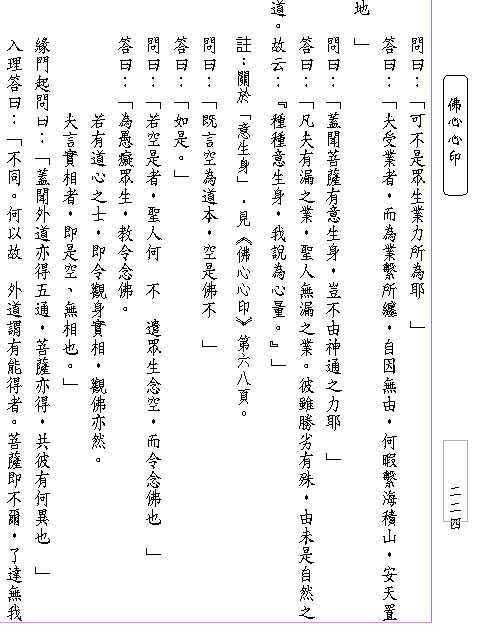 佛心心印
二二四
問曰：「可不是眾生業力所為耶 」
答曰：「夫受業者，而為業繫所纏，自因無由，何暇繫海積山，安天置
地 」
問曰：「蓋聞菩薩有意生身，豈不由神通之力耶 」
答曰：「凡夫有漏之業，聖人無漏之業。彼雖勝劣有殊，由未是自然之
道。故云：『種種意生身，我說為心量。』」
註：關於「意生身」，見《佛心心印》第六八頁。
問曰：「既言空為道本，空是佛不 」
答曰：「如是。」
問曰：「若空是者，聖人何 不 遣眾生念空，而令念佛也 」
答曰：「為愚癡眾生，教令念佛。
若有道心之士，即令觀身實相，觀佛亦然。
夫言實相者，即是空、無相也。」
緣門起問曰：「蓋聞外道亦得五通，菩薩亦得，共彼有何異也 」
入理答曰：「不同。何以故 外道謂有能得者。菩薩即不爾，了達無我